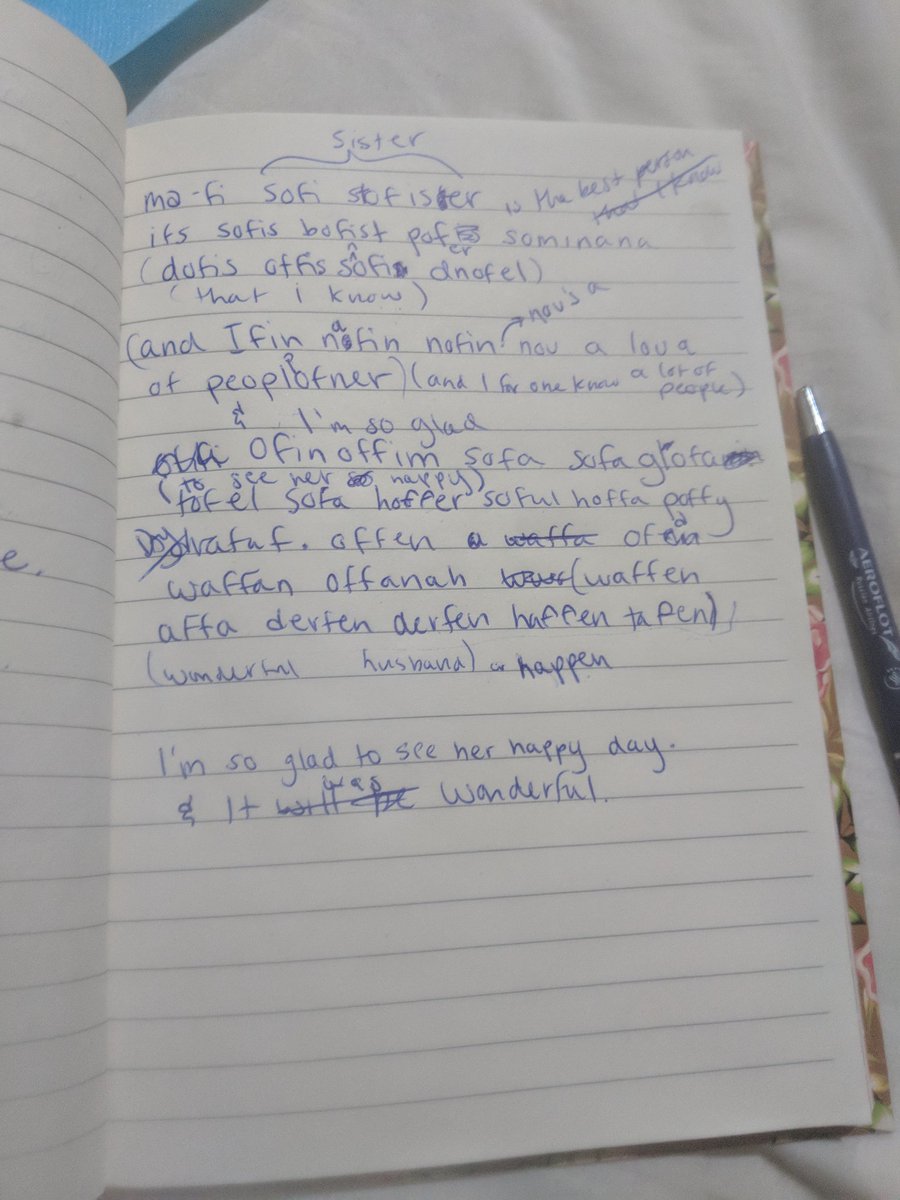 sister
ma-fi sofi stofister is the best person
that I know
its sofis bofist pofer sominana
(dofis offis sofis dnofel)
(that i know)
now's a
(and Ifin nafin nofin nou a loua
of peoplofner) (and I for one know a lot of people)
& I'm so glad
Ofinoffim sofa sofaglofa
(to see her so happy)
fofel sofa hoffer soful hoffa poffy
vafuf. offen a waffa of
waffan offanah (waffen
affa derfen derfen haffen taffen)
(wonderful husband) or happen
I'm so glad to see her happy day.
& It will be was wonderful.
e.
AEROFLOT